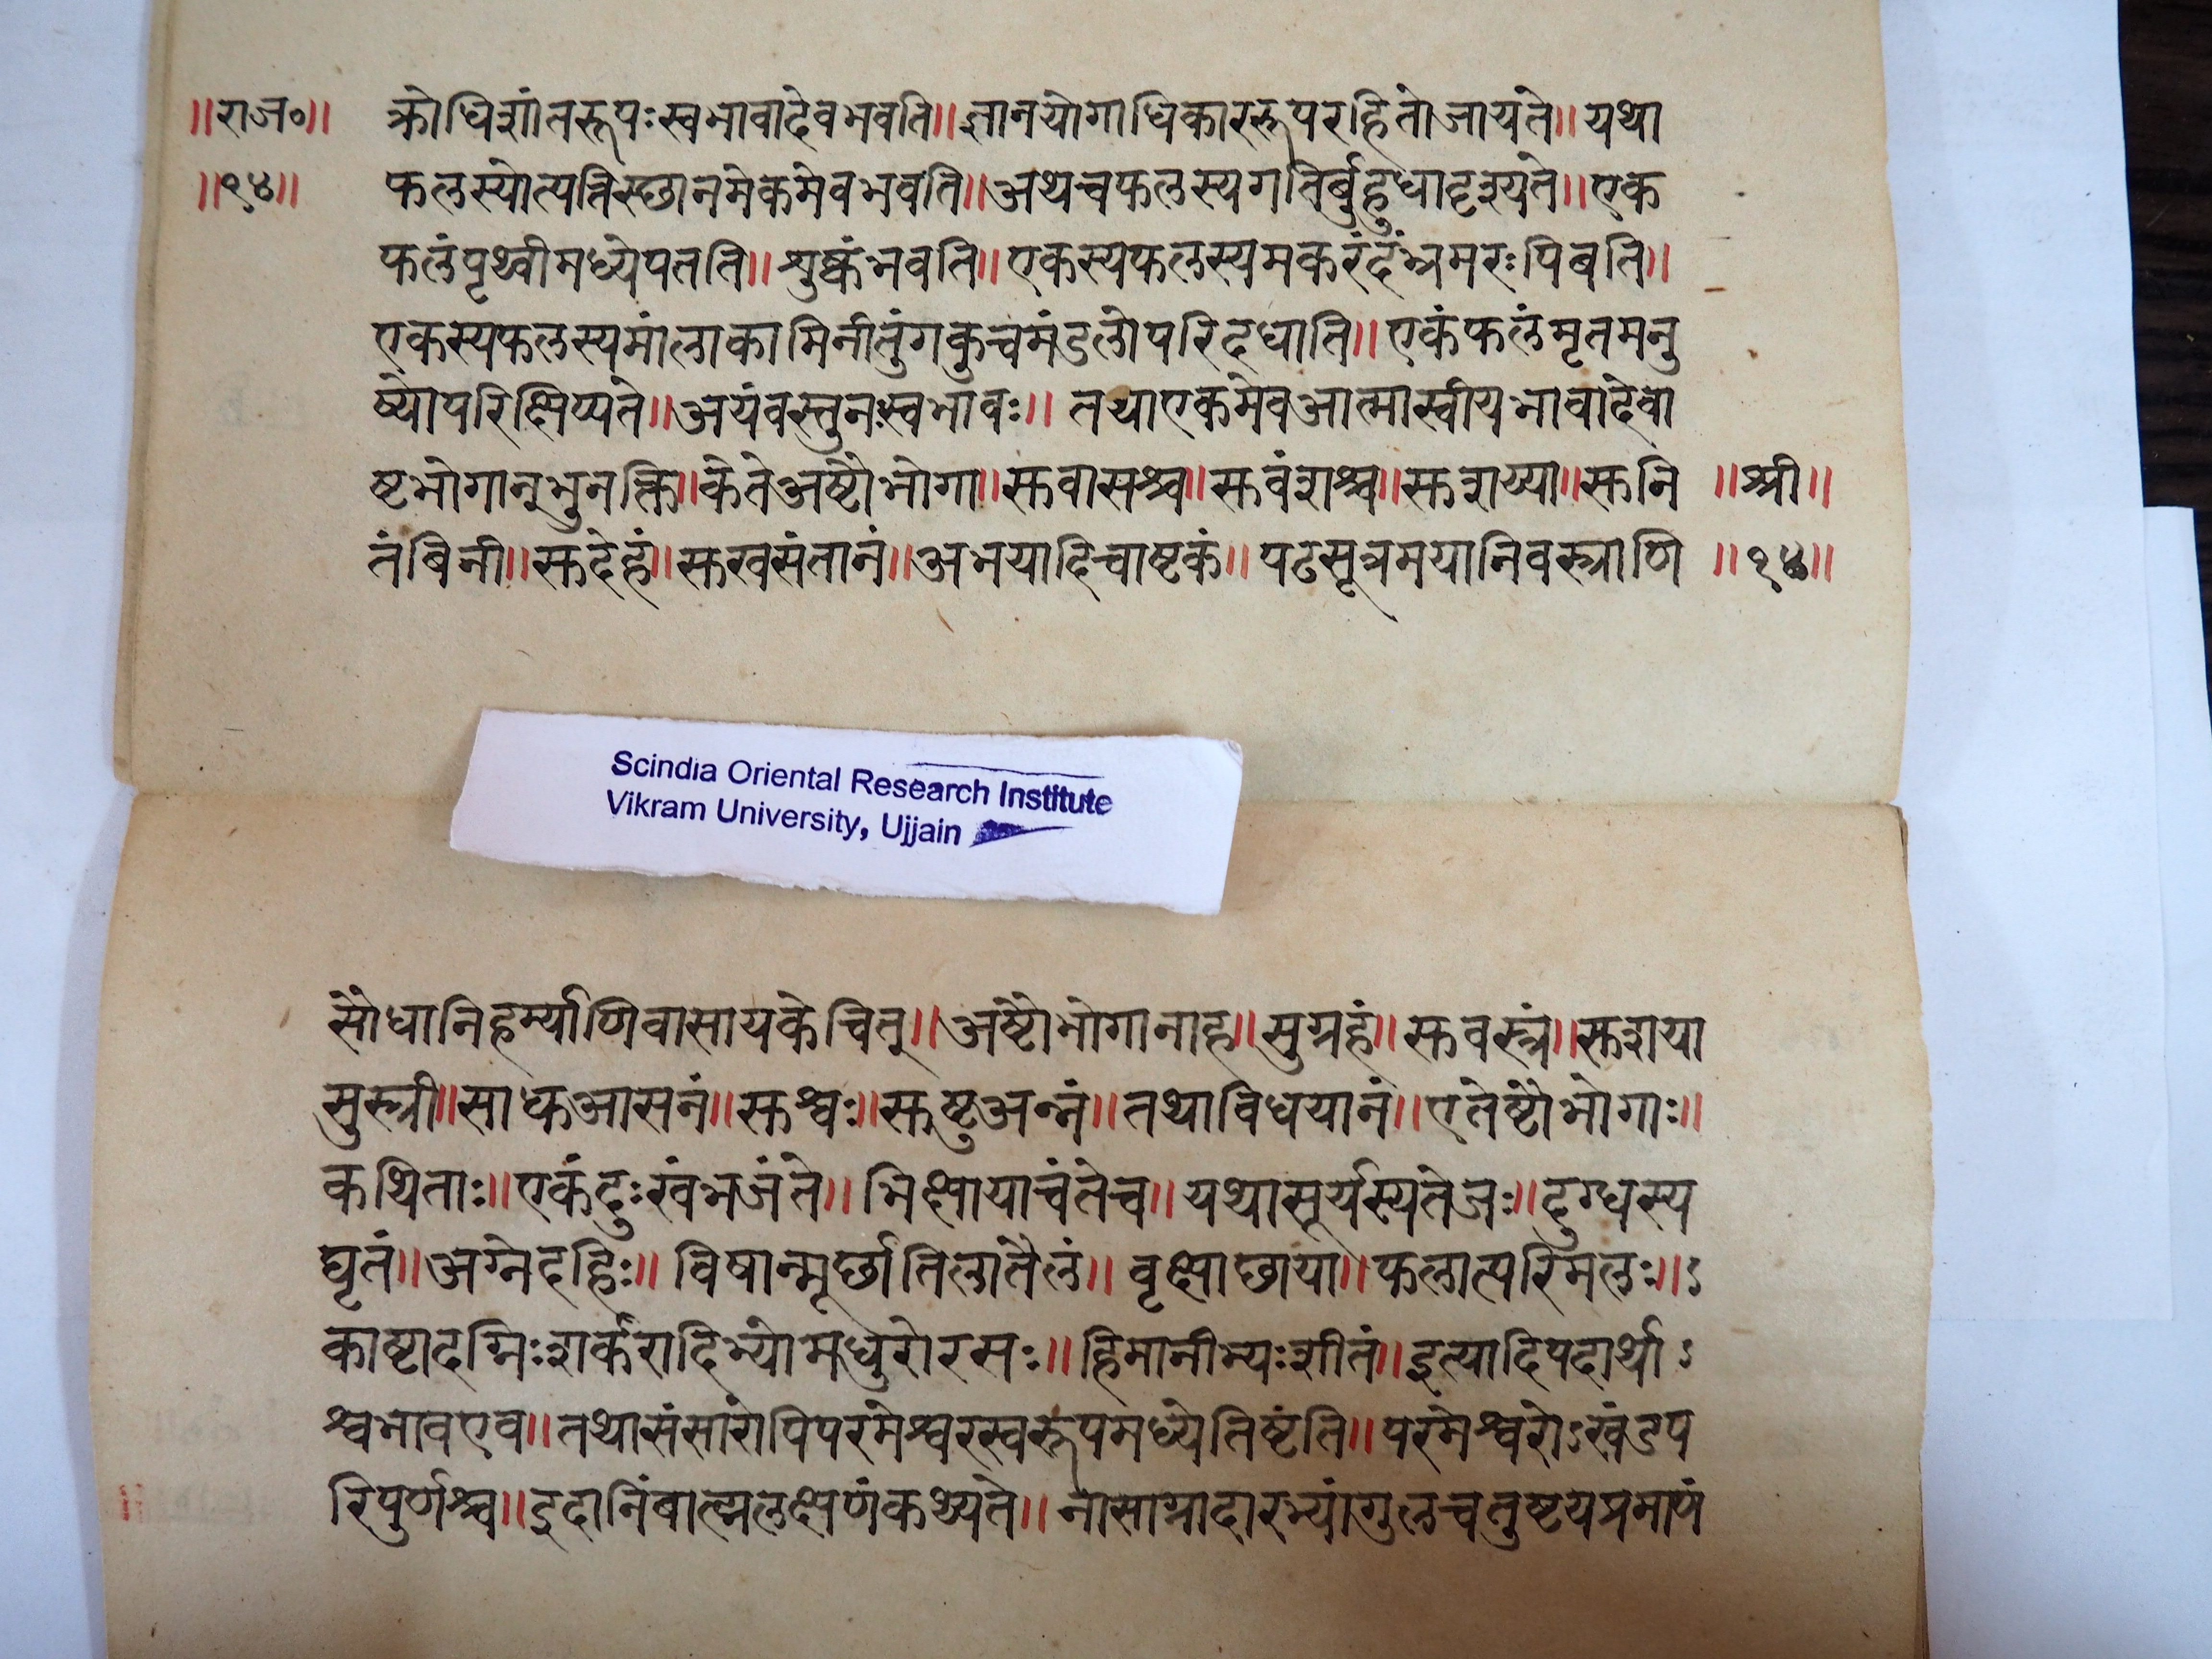 ॥राज॰॥ क्रोधिशांतरूपःस्वभावादेवभवति॥ज्ञानयोगाधिकाररूपरहितोजायते॥यथा
॥१४॥ फलस्योत्पत्तिस्छानमेकमेवभवति॥अथचफलस्यगतिर्बुहुधादृश्यते॥एक
फलंपृथ्वीमध्येपतति॥शुष्कंभवति॥एकस्यफलस्यमकरंदंभ्रमरःपिबति॥
एकस्यफलस्यमांलाकामिनीतुंगकुचमंडलोपरिदधाति॥एकंफलंमृतमनु
ष्योपरिक्षिप्यते॥अयंवस्तुनःस्वभावः॥तथाएकमेवआत्मास्वीयभावादेवा
ष्टभोगान्भुनक्ति॥केतेअष्टौभोगा॥सुवासश्च॥सुवंशश्च॥सुशय्या॥सुनि ॥श्री॥
तंबिनी॥सुदेहं॥सुखसंतानं॥अभयादिचाष्टकं॥पटसूत्रमयानिवस्त्राणि ॥१४॥
Scindia Oriental Research Institute
Vikram University, Ujjain
सौधानिहर्म्याणिवासायकेचित्॥अष्टौभोगानाह॥सुग्रहं॥सुवस्त्रं॥सुशया
सुस्त्री॥साधुआसनं॥सुश्वः॥सुष्टुअन्नं॥तथाविधयानं॥एतेष्टौभोगाः॥
कथिताः॥एकंदुःखंभजंते॥भिक्षायाचंतेच॥यथासूर्यस्यतेजः॥दुग्धस्य
घृतं॥अग्नेदहिः॥विषान्मूर्छातिलातैलं॥वृक्षाछाया॥फलात्परिमलः॥ऽ
काष्टादग्निःशर्करादिभ्योमधुरोरसः॥हिमानीभ्यःशीतं॥इत्यादिपदार्थाऽ
श्वभावएव॥तथासंसारोपिपरमेश्वरस्वरूपमध्येतिष्टंति॥परमेश्वरोऽखंडप
रिपुर्णश्च॥इदानिंबात्मलक्षणंकथ्यते॥नासाग्रादारभ्यांगुलचतुष्टयप्रमाणं